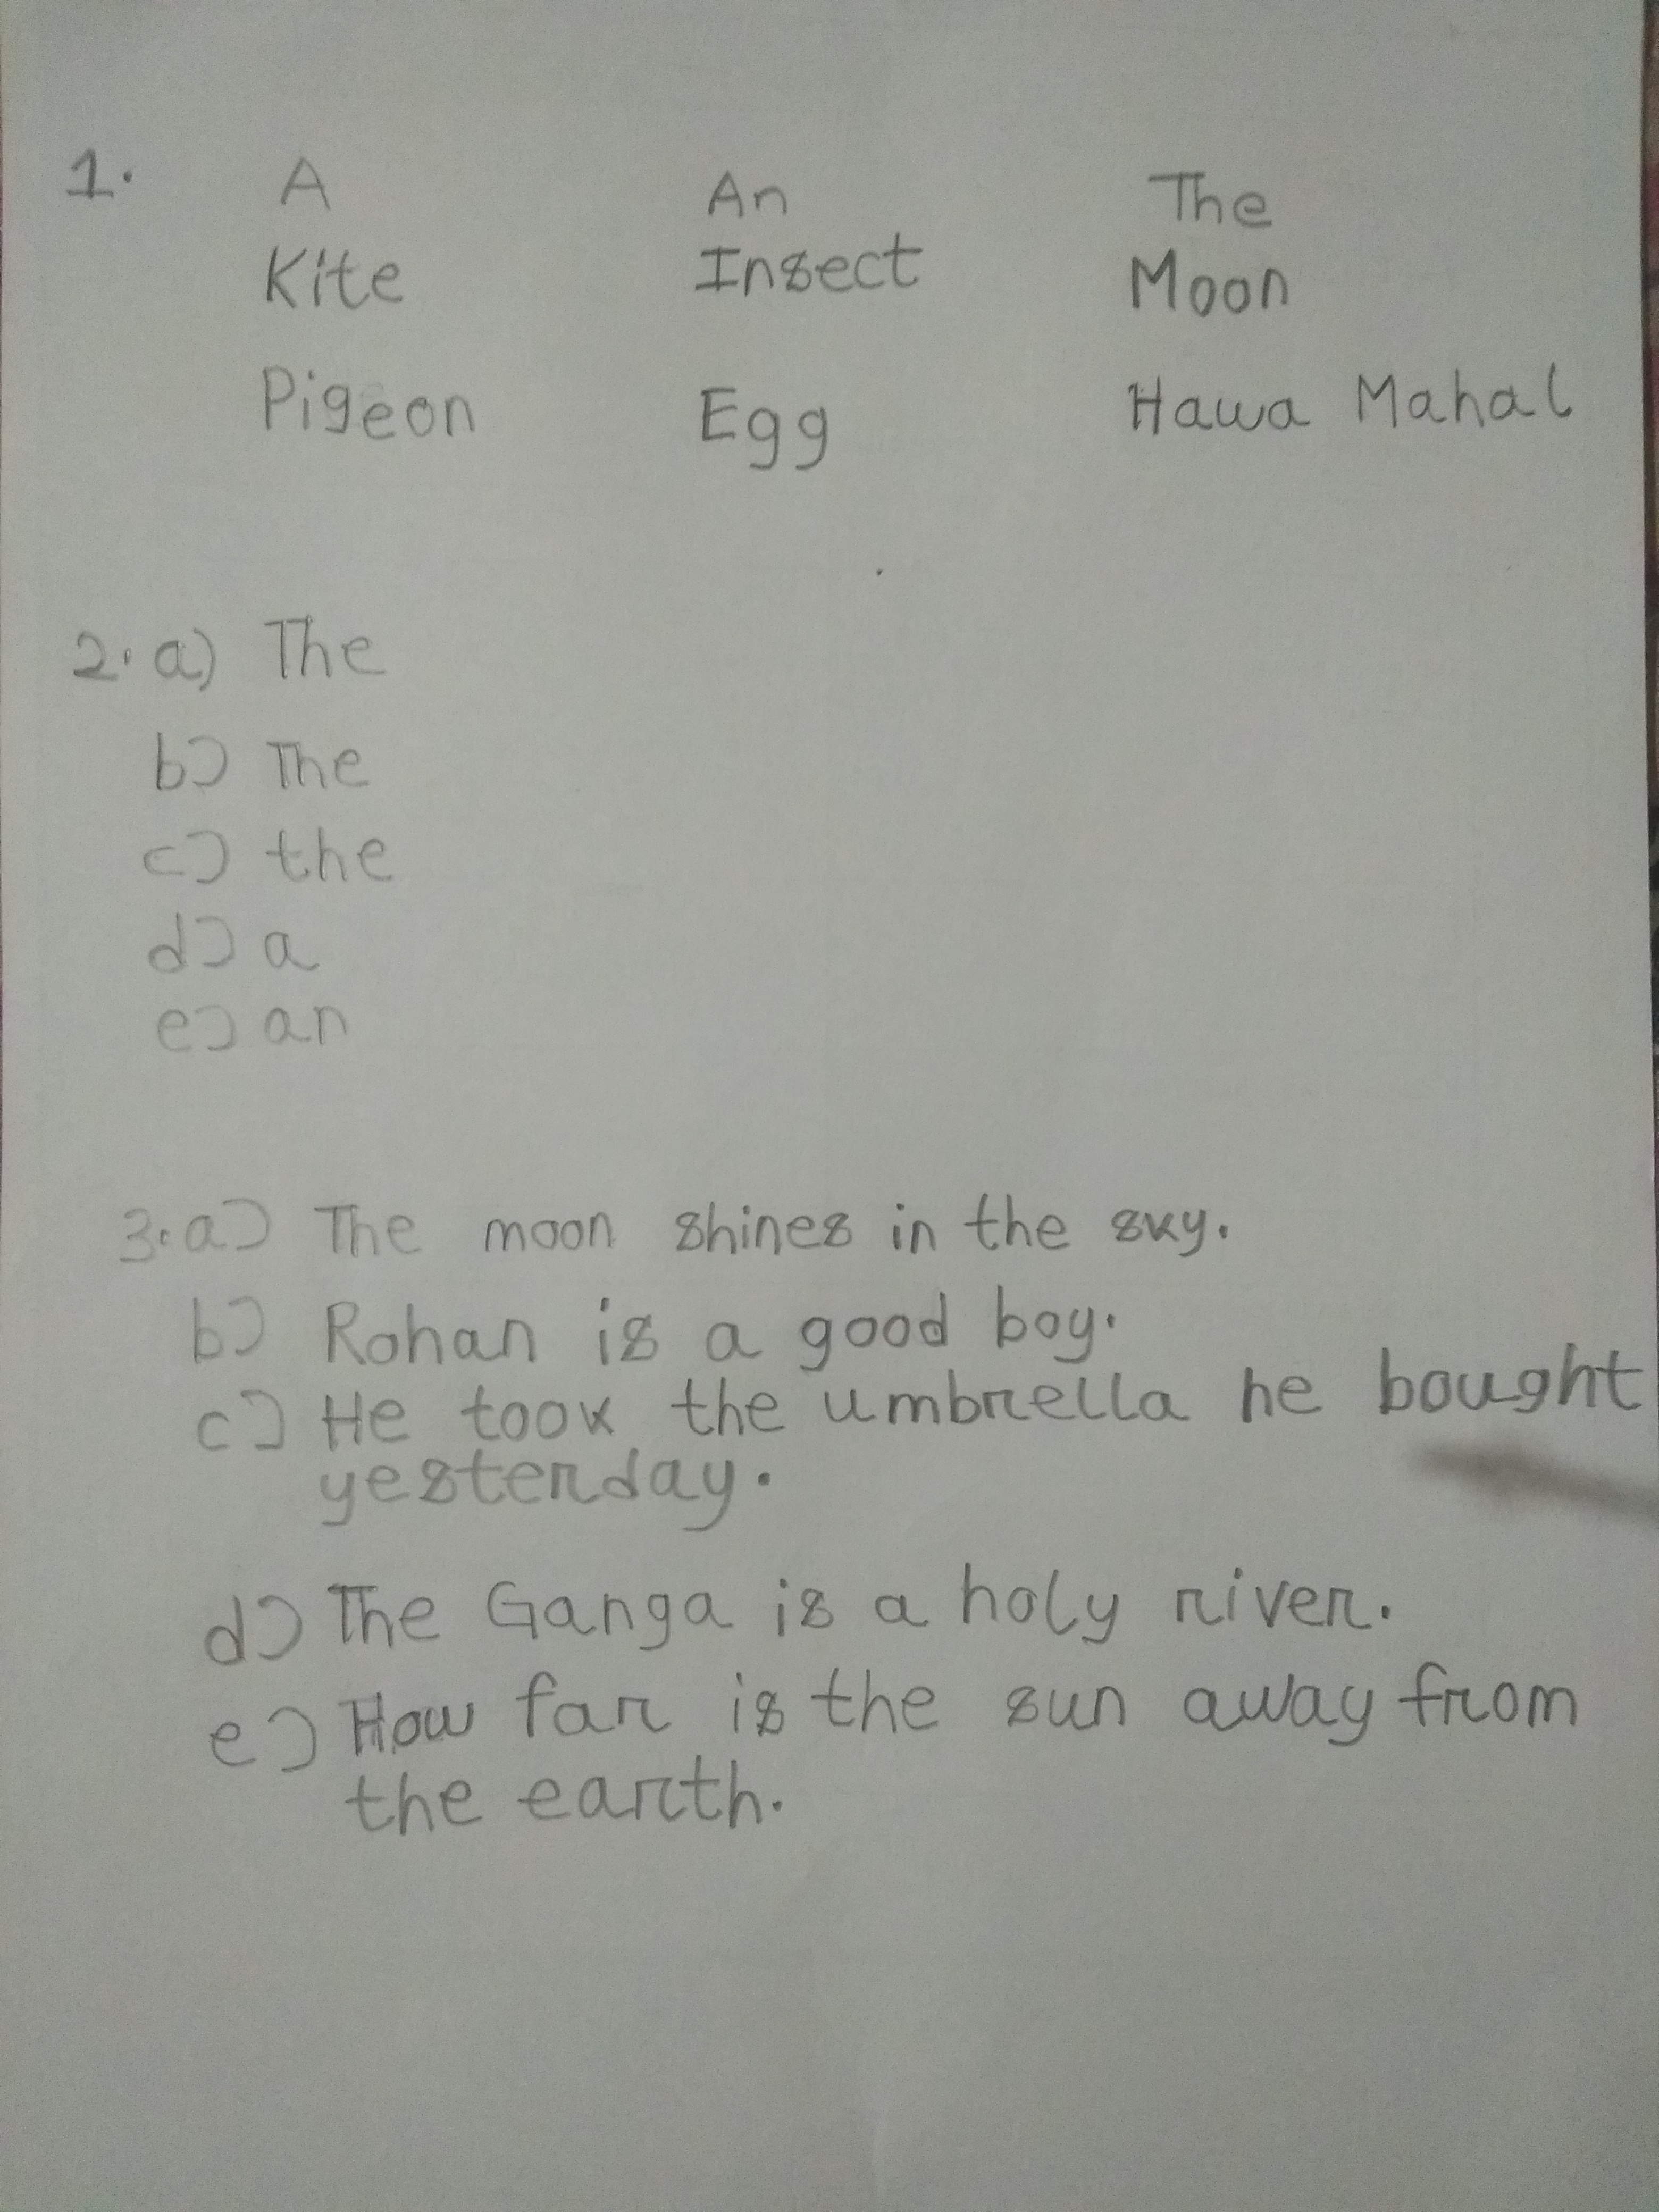 1. A An The
Kite Insect Moon
Pigeon Egg Hawa Mahal
2. a) The
b) The
c) the
d) a
e) an
3. a) The moon shines in the sky.
b) Rohan is a good boy.
c) He took the umbrella he bought
yesterday.
d) The Ganga is a holy river.
e) How far is the sun away from
the earth.